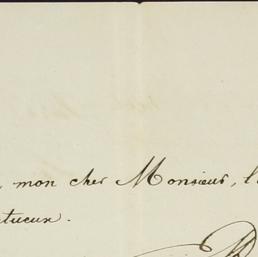 , mon cher Monsieur, l'
tueux.